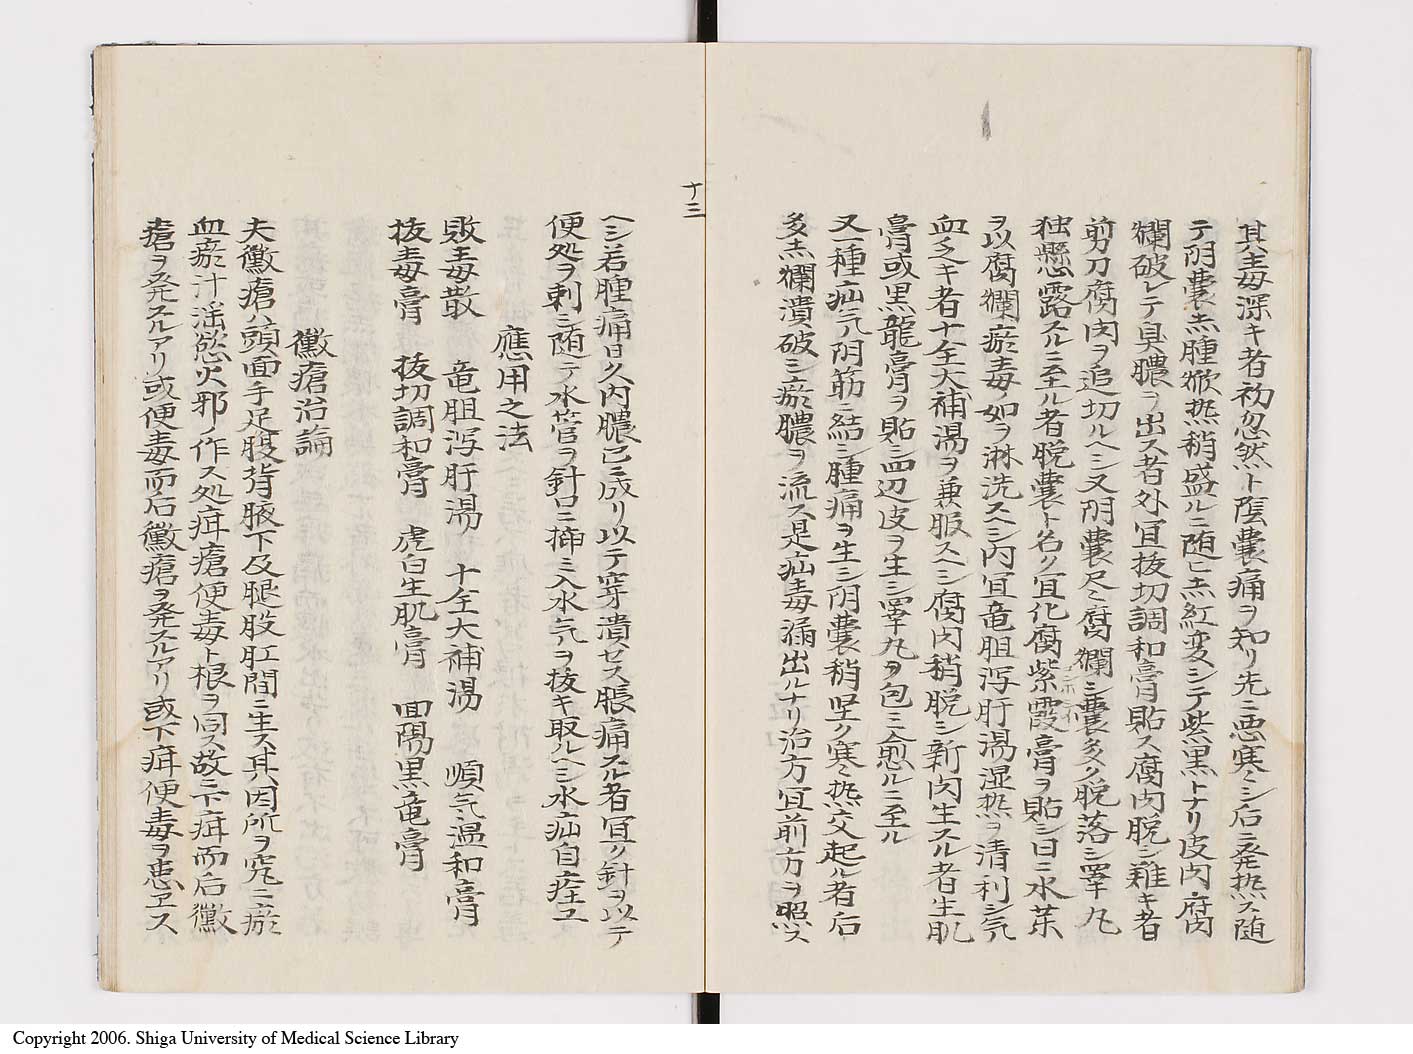 其毒深キ者初忽然ト陰囊痛ヲ知リ先ニ悪寒シ后ニ発熱ス随
テ阴囊赤腫焮热稍盛ルニ随ヒ赤紅変シテ紫黒トナリ皮肉腐
爛破レテ臭膿ヲ出ス者外冝抜切調和膏貼ス腐肉脱シ難キ者
剪刀腐肉ヲ追切ルヘシ又阴囊尽ク腐爛シ囊多ク脱落シ睪丸
独懸露スルニ至ル者脱囊ト名ク冝化腐紫霞膏ヲ貼シ日ニ水茱
ヲ以腐爛瘀毒ノ如ヲ淋洗スヘシ内冝竜胆泻肝湯湿热ヲ清利シ气
血乏キ者十全大補湯ヲ兼服スヘシ腐肉稍脱シ新肉生スル者生肌
膏或黒龍膏ヲ貼シ四辺皮ヲ生シ睪丸ヲ包ミ愈ルニ至ル
又一種疝气阴筋ニ結シ腫痛ヲ生シ阴囊稍坚ク寒热交起ル者后
多赤爛潰破シ瘀膿ヲ流ス是疝毒漏出ルナリ治方冝前方ヲ照ス
十三
ヘシ若腫痛日久内膿已ニ成リ以テ穿潰セス脹痛スル者冝ク針ヲ以テ
便処ヲ刺シ随テ水管ヲ針口ニ挿ミ入水气ヲ抜キ取ルヘシ水疝自痊ユ
應用之法
敗毒散 竜胆泻肝湯 十全大補湯 順气温和膏
抜毒膏 抜切調和膏 虎白生肌膏 回陽黒竜膏
黴瘡治論
夫黴瘡ハ頭面手足腹背腋下及腿股肛間ニ生ス其因所ヲ究ニ瘀
血瘀汁滛慾火邪ノ作ス処疳瘡便毒ト根ヲ同ス故ニ下疳而后黴
瘡ヲ発スルアリ或便毒而后黴瘡ヲ発スルアリ或下疳便毒ヲ患ヱス
Copyright 2006. Shiga University of Medical Science Library